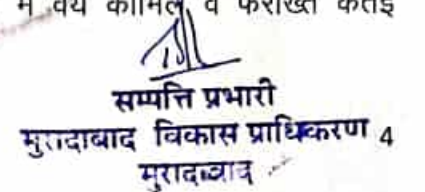 में वय कामिल व फरोख्त कतई
सम्पत्ति प्रभारी
मुरादाबाद विकास प्राधिकरण 4
मुरादाबाद